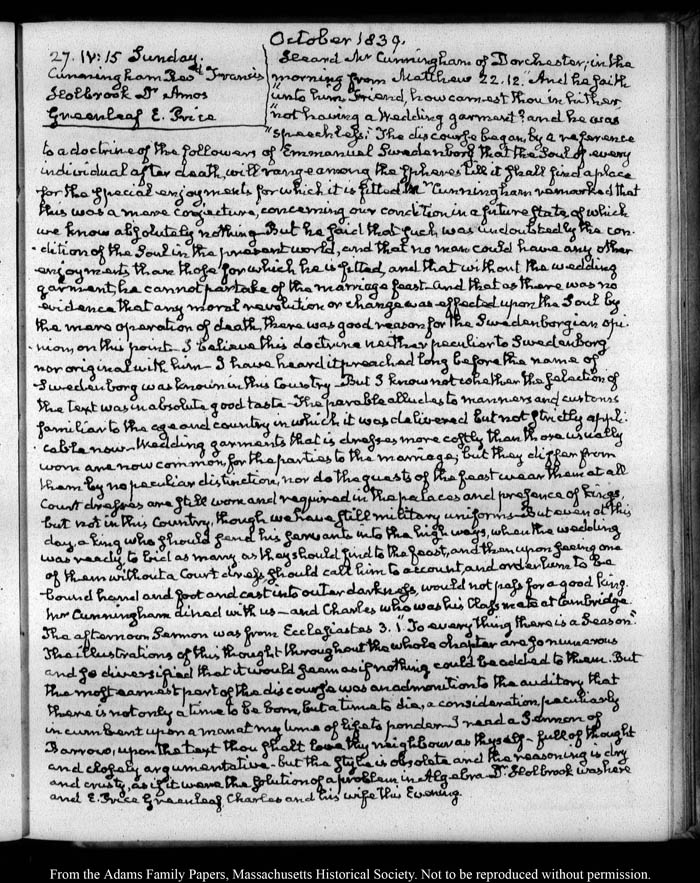 October 1839.
27. IV:15 Sunday.
Cunningham Revd Francis
Holbrook Dr Amos
Greenleaf E. Price
Heard Mr Cunningham of Dorchester, in the
morning from Matthew 22.12. "And he saith
"unto him Friend, how camest thou in hither
"not having a Wedding garment? and he was
"speechless." The discourse began by a reference
to a doctrine of the followers of Emmanuel Swedenborg that the Soul of every
individual after death, will range among the Spheres till it shall find a place
for the special enjoyments for which it is fitted Mr Cunningham remarked that
this was a mere conjecture, concerning our condition in a future state, of which
we know absolutely nothing—But he said that such was undoubtedly the con-
-dition of the Soul in the present world, and that no man could have any other
enjoyments than those for which he is fitted, and that without the wedding
garment, he cannot partake of the marriage feast—and that as there was no
evidence that any moral revolution or change was effected upon the Soul by
the mere operation of death, there was good reason for the Swedenborgian opi-
-nion, on this point—I believe this doctrine neither peculiar to Swedenborg
nor original with him—I have heard it preached long before the name of
Swedenborg was known in this Country—But I know not whether the selection of
the text was in absolute good taste—The parable alludes to manners and customs
familiar to the age and country in which it was delivered but not strictly appli-
-cable now—Wedding garments that is dresses more costly than those usually
worn are now common, for the parties to the marriage; but they differ from
them by no peculiar distinction, nor do the guests of the feast wear them at all
Court dresses are still worn and required in the palaces and presence of kings,
but not in this Country, though we have still military uniforms—But even at this
day, a king who should send his servants into the high ways, when the wedding
was ready, to bid as many as they should find to the feast, and then upon seeing one
of them without a Court dress should call him to account and order him to be
bound hand and foot and cast into outer darkness, would not pass for a good king.
Mr Cunningham dined with us—and Charles who was his Class mate at Cambridge.
The afternoon Sermon was from Ecclesiastes 3.1. "To every thing there is a Season".
The illustrations of this thought throughout the whole chapter are so numerous
and so diversified that it would seem as if nothing could be added to them. But
the most earnest part of the discourse was an admonition to the auditory that
there is not only a time to be born, but a time to die, a consideration, peculiarly
incumbent upon a man at my time of life to ponder—I read a Sermon of
Barrow, upon the text thou shalt love thy neighbour as thyself—full of thought
and closely argumentative—but the style is obsolete and the reasoning is dry
and crusty, as if it were the solution of a problem in Algebra—Dr Holbrook was here
and E. Price Greenleaf Charles and his wife this Evening.
From the Adams Family Papers, Massachusetts Historical Society. Not to be reproduced without permission.